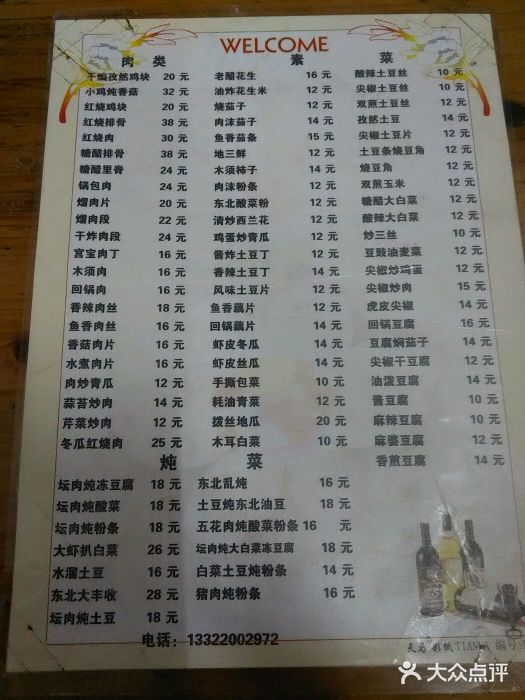 WELCOME
肉 类
干煸孜然鸡块 20 元
小鸡炖香菇 32 元
红烧鸡块 20 元
红烧排骨 38 元
红烧肉 30 元
糖醋排骨 38 元
糖醋里脊 24 元
锅包肉 24 元
熘肉片 20 元
熘肉段 22 元
干炸肉段 24 元
宫宝肉丁 16 元
木须肉 16 元
回锅肉 16 元
香辣肉丝 18 元
鱼香肉丝 16 元
香菇肉片 16 元
水煮肉片 16 元
肉炒青瓜 12 元
蒜苔炒肉 14 元
芹菜炒肉 12 元
冬瓜红烧肉 25 元
素 菜
老醋花生 16 元
油炸花生米 12 元
烧茄子 12 元
肉沫茄子 12 元
鱼香茄条 15 元
地三鲜 12 元
木须柿子 14 元
肉沫粉条 12 元
东北酸菜粉 12 元
清炒西兰花 12 元
鸡蛋炒青瓜 12 元
酱炸土豆丁 12 元
香辣土豆丁 14 元
风味土豆片 12 元
鱼香藕片 12 元
回锅藕片 14 元
虾皮冬瓜 14 元
虾皮丝瓜 14 元
手撕包菜 10 元
耗油青菜 12 元
拨丝地瓜 20 元
木耳白菜 10 元
酸辣土豆丝 10 元
尖椒土豆丝 10 元
双煎土豆丝 12 元
孜然土豆 14 元
尖椒土豆片 12 元
土豆条烧豆角 12 元
烧豆角 12 元
双煎玉米 12 元
糖醋大白菜 12 元
酸辣大白菜 12 元
炒三丝 10 元
豆豉油麦菜 12 元
尖椒炒鸡蛋 12 元
尖椒炒肉 15 元
虎皮尖椒 14 元
回锅豆腐 12 元
豆腐焖茄子 14 元
尖椒干豆腐 12 元
油泼豆腐 14 元
酱豆腐 12 元
麻辣豆腐 12 元
麻婆豆腐 12 元
香煎豆腐 14 元
炖 菜
坛肉炖冻豆腐 18 元
坛肉炖酸菜 18 元
坛肉炖粉条 18 元
大虾扒白菜 26 元
水溜土豆 16 元
东北大丰收 28 元
坛肉炖土豆 18 元
东北乱炖 16 元
土豆炖东北油豆 18 元
五花肉炖酸菜粉条 16 元
坛肉炖大白菜冻豆腐 18 元
白菜土豆炖粉条 14 元
猪肉炖粉条 16 元
电话：13322002972
天马 彩纸 TIANMA 编号
大众点评